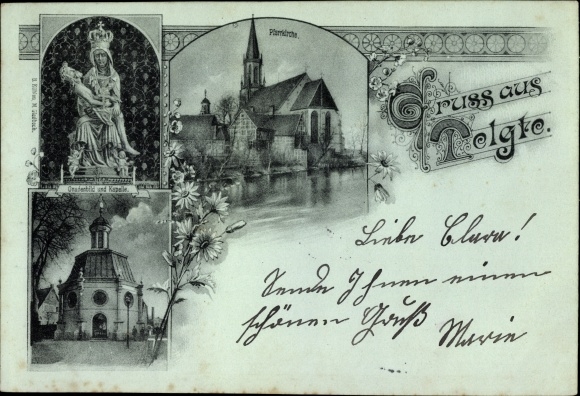 Pfarrkirche.
Gruss aus
Telgte.
Gnadenbild und Kapelle.
Liebe Clara!
Sende Ihnen einen
schönen Gruß
Marie